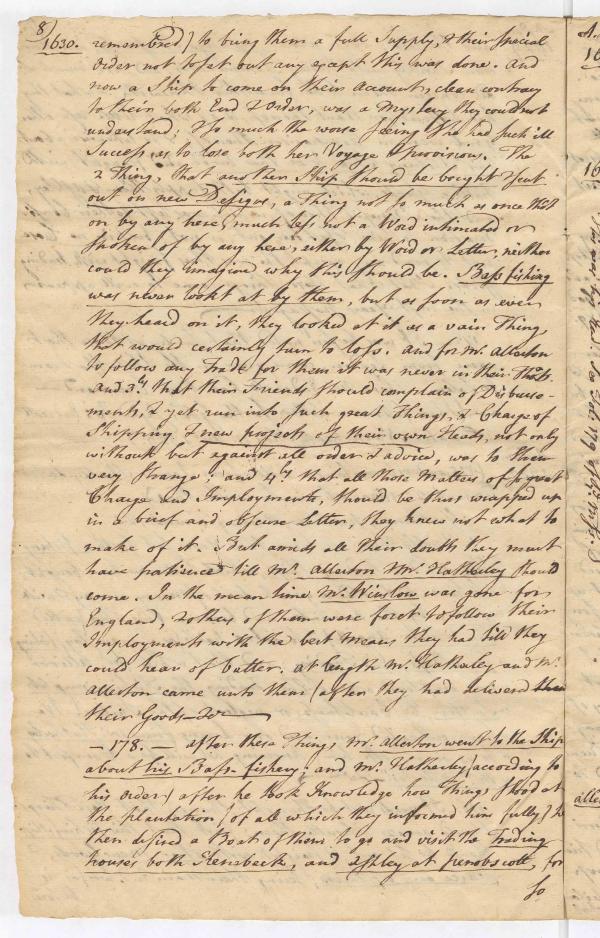 8)
1630. remembred) to bring them a full Supply, & their special
order not to set out any except this was done. And
now a Ship to come on their Account, clean contrary
to their both End & order, was a mystery they could not
understand; & so much the worse seeing She had such ill
Success, as to lose both her Voyage & provisions. The
2 Thing, that another Ship should be bought & sent
out on new Designs, a Thing not so much as once tho't
on by any here, much less not a Word intimated or
spoken of by any here, either by Word or Letter, neither
could they imagine why this should be. Bass fishing
was never lookt at by them, but as soon as ever
they heard on it, they looked at it as a vain Thing,
that would certainly turn to loss. and for Mr. Allerton
to follow any Trade for them it was never in their Tho'ts.
And 3ly that their Friends should complain of Disburse-
ments, & yet run into such great Things, & Charge of
Shipping & new projects of their own Heads, not only
without but against all order & advice, was to them
very strange; and 4ly that all those Matters of so great
Charge and Imployments, should be thus wrapped up
in a brief and obscure Letter, they knew not what to
make of it. But amids all their doubts they must
have patience till Mr. Allerton & Mr. Hatherley should
come. In the mean time Mr. Winslow was gone for
England, & others of them were forct to follow their
Imployments with the best Means they had till they
could hear of better. at length Mr. Hatherley and Mr.
Allerton came unto them (after they had delivered their
their Goods—&c
— 178. — after these Things Mr. Allerton went to the Ship
about his Bass fishery; and Mr. Hatherley (according to
his order) after he took Knowledge how Things stood at
the plantation (of all which they informed him fully) he
then desired a Boat of them to go and visit the Trading
houses both Kennebeck, and Ashley at penobscott, for
so